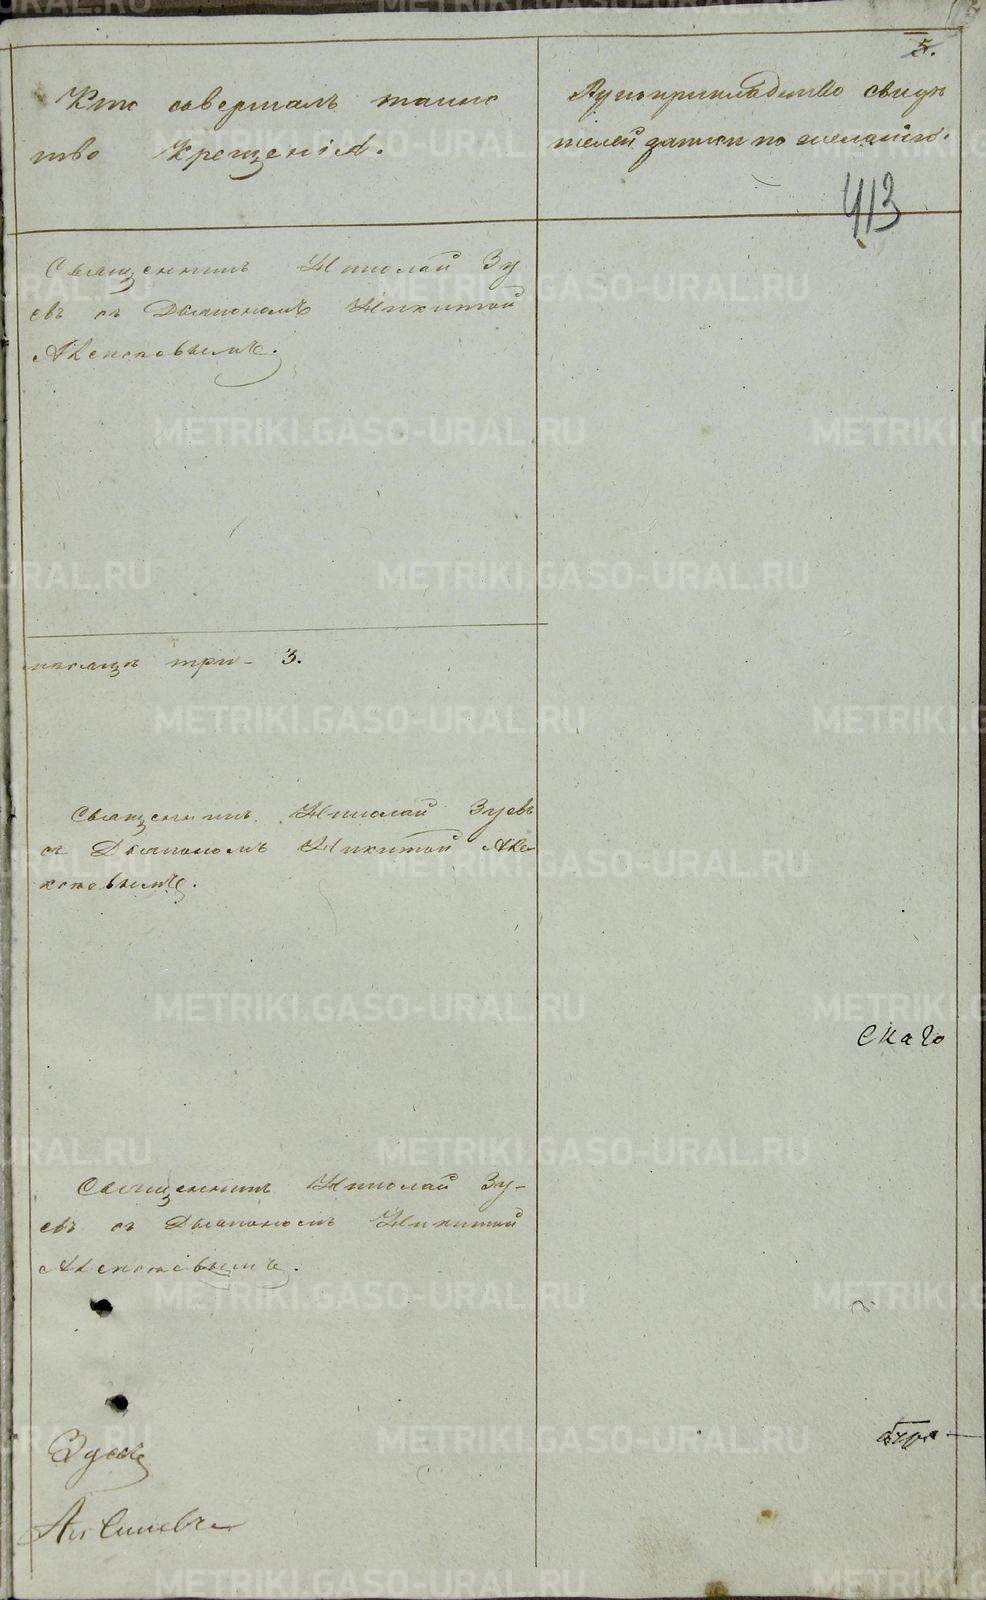 5.
Кто совершалъ таинс
тво Крещенія.
Рукоприкладство свидѣ
телей записи по желанію.
413
Священникъ Николай Зу
евъ съ Дьякономъ Никитой
Аксеновымъ.
три - 3.
Священникъ Николай Зуевъ
съ Дьякономъ Никитой
Священникъ Николай Зу-
евъ съ Дьякономъ Никитой
скаго
Зуевъ
METRIKI.GASO-URAL.RU